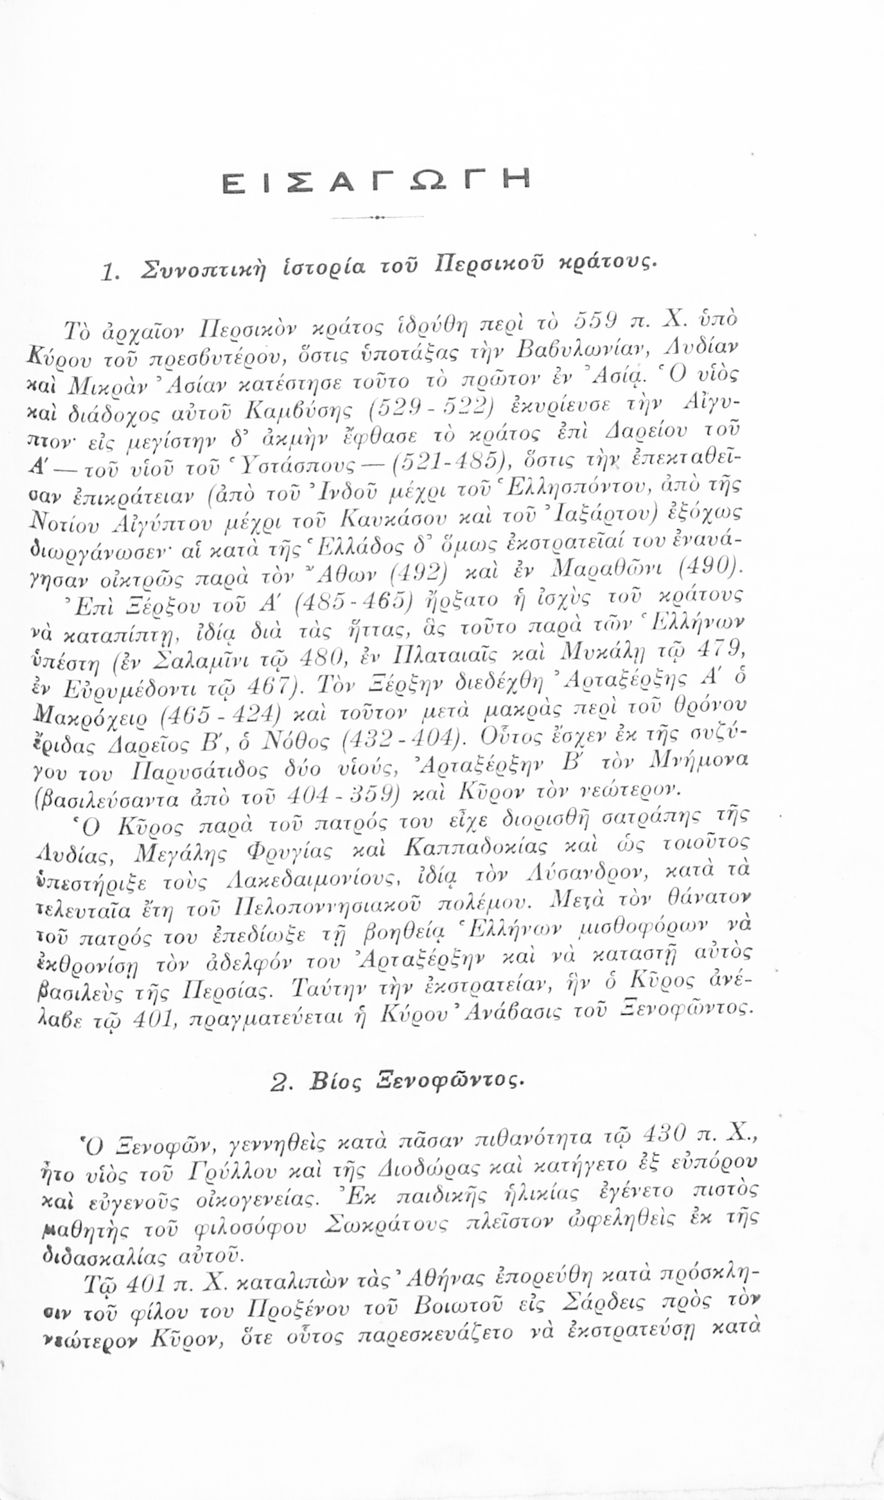 ΕΙΣΑΓΩΓΗ
1. Συνοπτικὴ ἱστορία τοῦ Περσικοῦ κράτους.
Τὸ ἀρχαῖον Περσικὸν κράτος ἱδρύθη περὶ τὸ 559 π. Χ. ὑπὸ
Κύρου τοῦ πρεσβυτέρου, ὅστις ὑποτάξας τὴν Βαβυλωνίαν, Λυδίαν
καὶ Μικρὰν Ἀσίαν κατέστησε τοῦτο τὸ πρῶτον ἐν Ἀσίᾳ. Ὁ υἱὸς
καὶ διάδοχος αὐτοῦ Καμβύσης (529 - 522) ἐκυρίευσε τὴν Αἴγυ-
πτον· εἰς μεγίστην δ' ἀκμὴν ἔφθασε τὸ κράτος ἐπὶ Δαρείου τοῦ
Α' — τοῦ υἱοῦ τοῦ Ὑστάσπους — (521-485), ὅστις τὴν ἐπεκταθεῖ-
σαν ἐπικράτειαν (ἀπὸ τοῦ Ἰνδοῦ μέχρι τοῦ Ἑλλησπόντου, ἀπὸ τῆς
Νοτίου Αἰγύπτου μέχρι τοῦ Καυκάσου καὶ τοῦ Ἰαξάρτου) ἐξόχως
διωργάνωσεν· αἱ κατὰ τῆς Ἑλλάδος δ' ὅμως ἐκστρατεῖαί του ἐναυά-
γησαν οἰκτρῶς παρὰ τὸν Ἄθων (492) καὶ ἐν Μαραθῶνι (490).
Ἐπὶ Ξέρξου τοῦ Α' (485-465) ἤρξατο ἡ ἰσχὺς τοῦ κράτους
νὰ καταπίπτῃ, ἰδίᾳ διὰ τὰς ἥττας, ἃς τοῦτο παρὰ τῶν Ἑλλήνων
ὑπέστη (ἐν Σαλαμῖνι τῷ 480, ἐν Πλαταιαῖς καὶ Μυκάλῃ τῷ 479,
ἐν Εὐρυμέδοντι τῷ 467). Τὸν Ξέρξην διεδέχθη Ἀρταξέρξης Α' ὁ
Μακρόχειρ (465 - 424) καὶ τοῦτον μετὰ μακρὰς περὶ τοῦ θρόνου
ἔριδας Δαρεῖος Β', ὁ Νόθος (432 - 404). Οὗτος ἔσχεν ἐκ τῆς συζύ-
γου του Παρυσάτιδος δύο υἱούς, Ἀρταξέρξην Β' τὸν Μνήμονα
(βασιλεύσαντα ἀπὸ τοῦ 404 - 359) καὶ Κῦρον τὸν νεώτερον.
Ὁ Κῦρος παρὰ τοῦ πατρός του εἶχε διορισθῆ σατράπης τῆς
Λυδίας, Μεγάλης Φρυγίας καὶ Καππαδοκίας καὶ ὡς τοιοῦτος
ὑπεστήριξε τοὺς Λακεδαιμονίους, ἰδίᾳ τὸν Λύσανδρον, κατὰ τὰ
τελευταῖα ἔτη τοῦ Πελοποννησιακοῦ πολέμου. Μετὰ τὸν θάνατον
τοῦ πατρός του ἐπεδίωξε τῇ βοηθείᾳ Ἑλλήνων μισθοφόρων νὰ
ἐκθρονίσῃ τὸν ἀδελφόν του Ἀρταξέρξην καὶ νὰ καταστῇ αὐτὸς
βασιλεὺς τῆς Περσίας. Ταύτην τὴν ἐκστρατείαν, ἣν ὁ Κῦρος ἀνέ-
λαβε τῷ 401, πραγματεύεται ἡ Κύρου Ἀνάβασις τοῦ Ξενοφῶντος.
2. Βίος Ξενοφῶντος.
Ὁ Ξενοφῶν, γεννηθεὶς κατὰ πᾶσαν πιθανότητα τῷ 430 π. Χ.,
ἦτο υἱὸς τοῦ Γρύλλου καὶ τῆς Διοδώρας καὶ κατήγετο ἐξ εὐπόρου
καὶ εὐγενοῦς οἰκογενείας. Ἐκ παιδικῆς ἡλικίας ἐγένετο πιστὸς
μαθητὴς τοῦ φιλοσόφου Σωκράτους πλεῖστον ὠφεληθεὶς ἐκ τῆς
διδασκαλίας αὐτοῦ.
Τῷ 401 π. Χ. καταλιπὼν τὰς Ἀθήνας ἐπορεύθη κατὰ πρόσκλη-
σιν τοῦ φίλου του Προξένου τοῦ Βοιωτοῦ εἰς Σάρδεις πρὸς τὸν
νεώτερον Κῦρον, ὅτε οὗτος παρεσκευάζετο νὰ ἐκστρατεύσῃ κατὰ